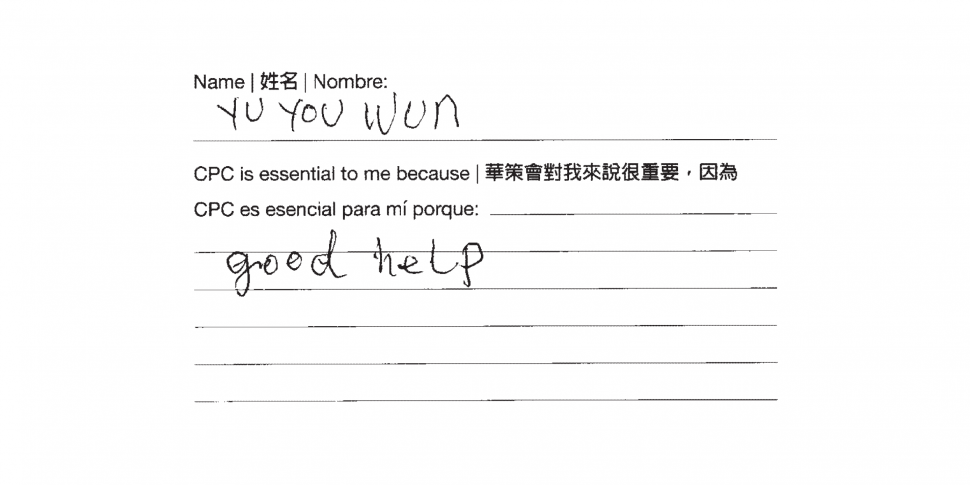 Name | 姓名 | Nombre:
YU YOU WUN
CPC is essential to me because | 華策會對我來說很重要，因為
CPC es esencial para mí porque:
good help